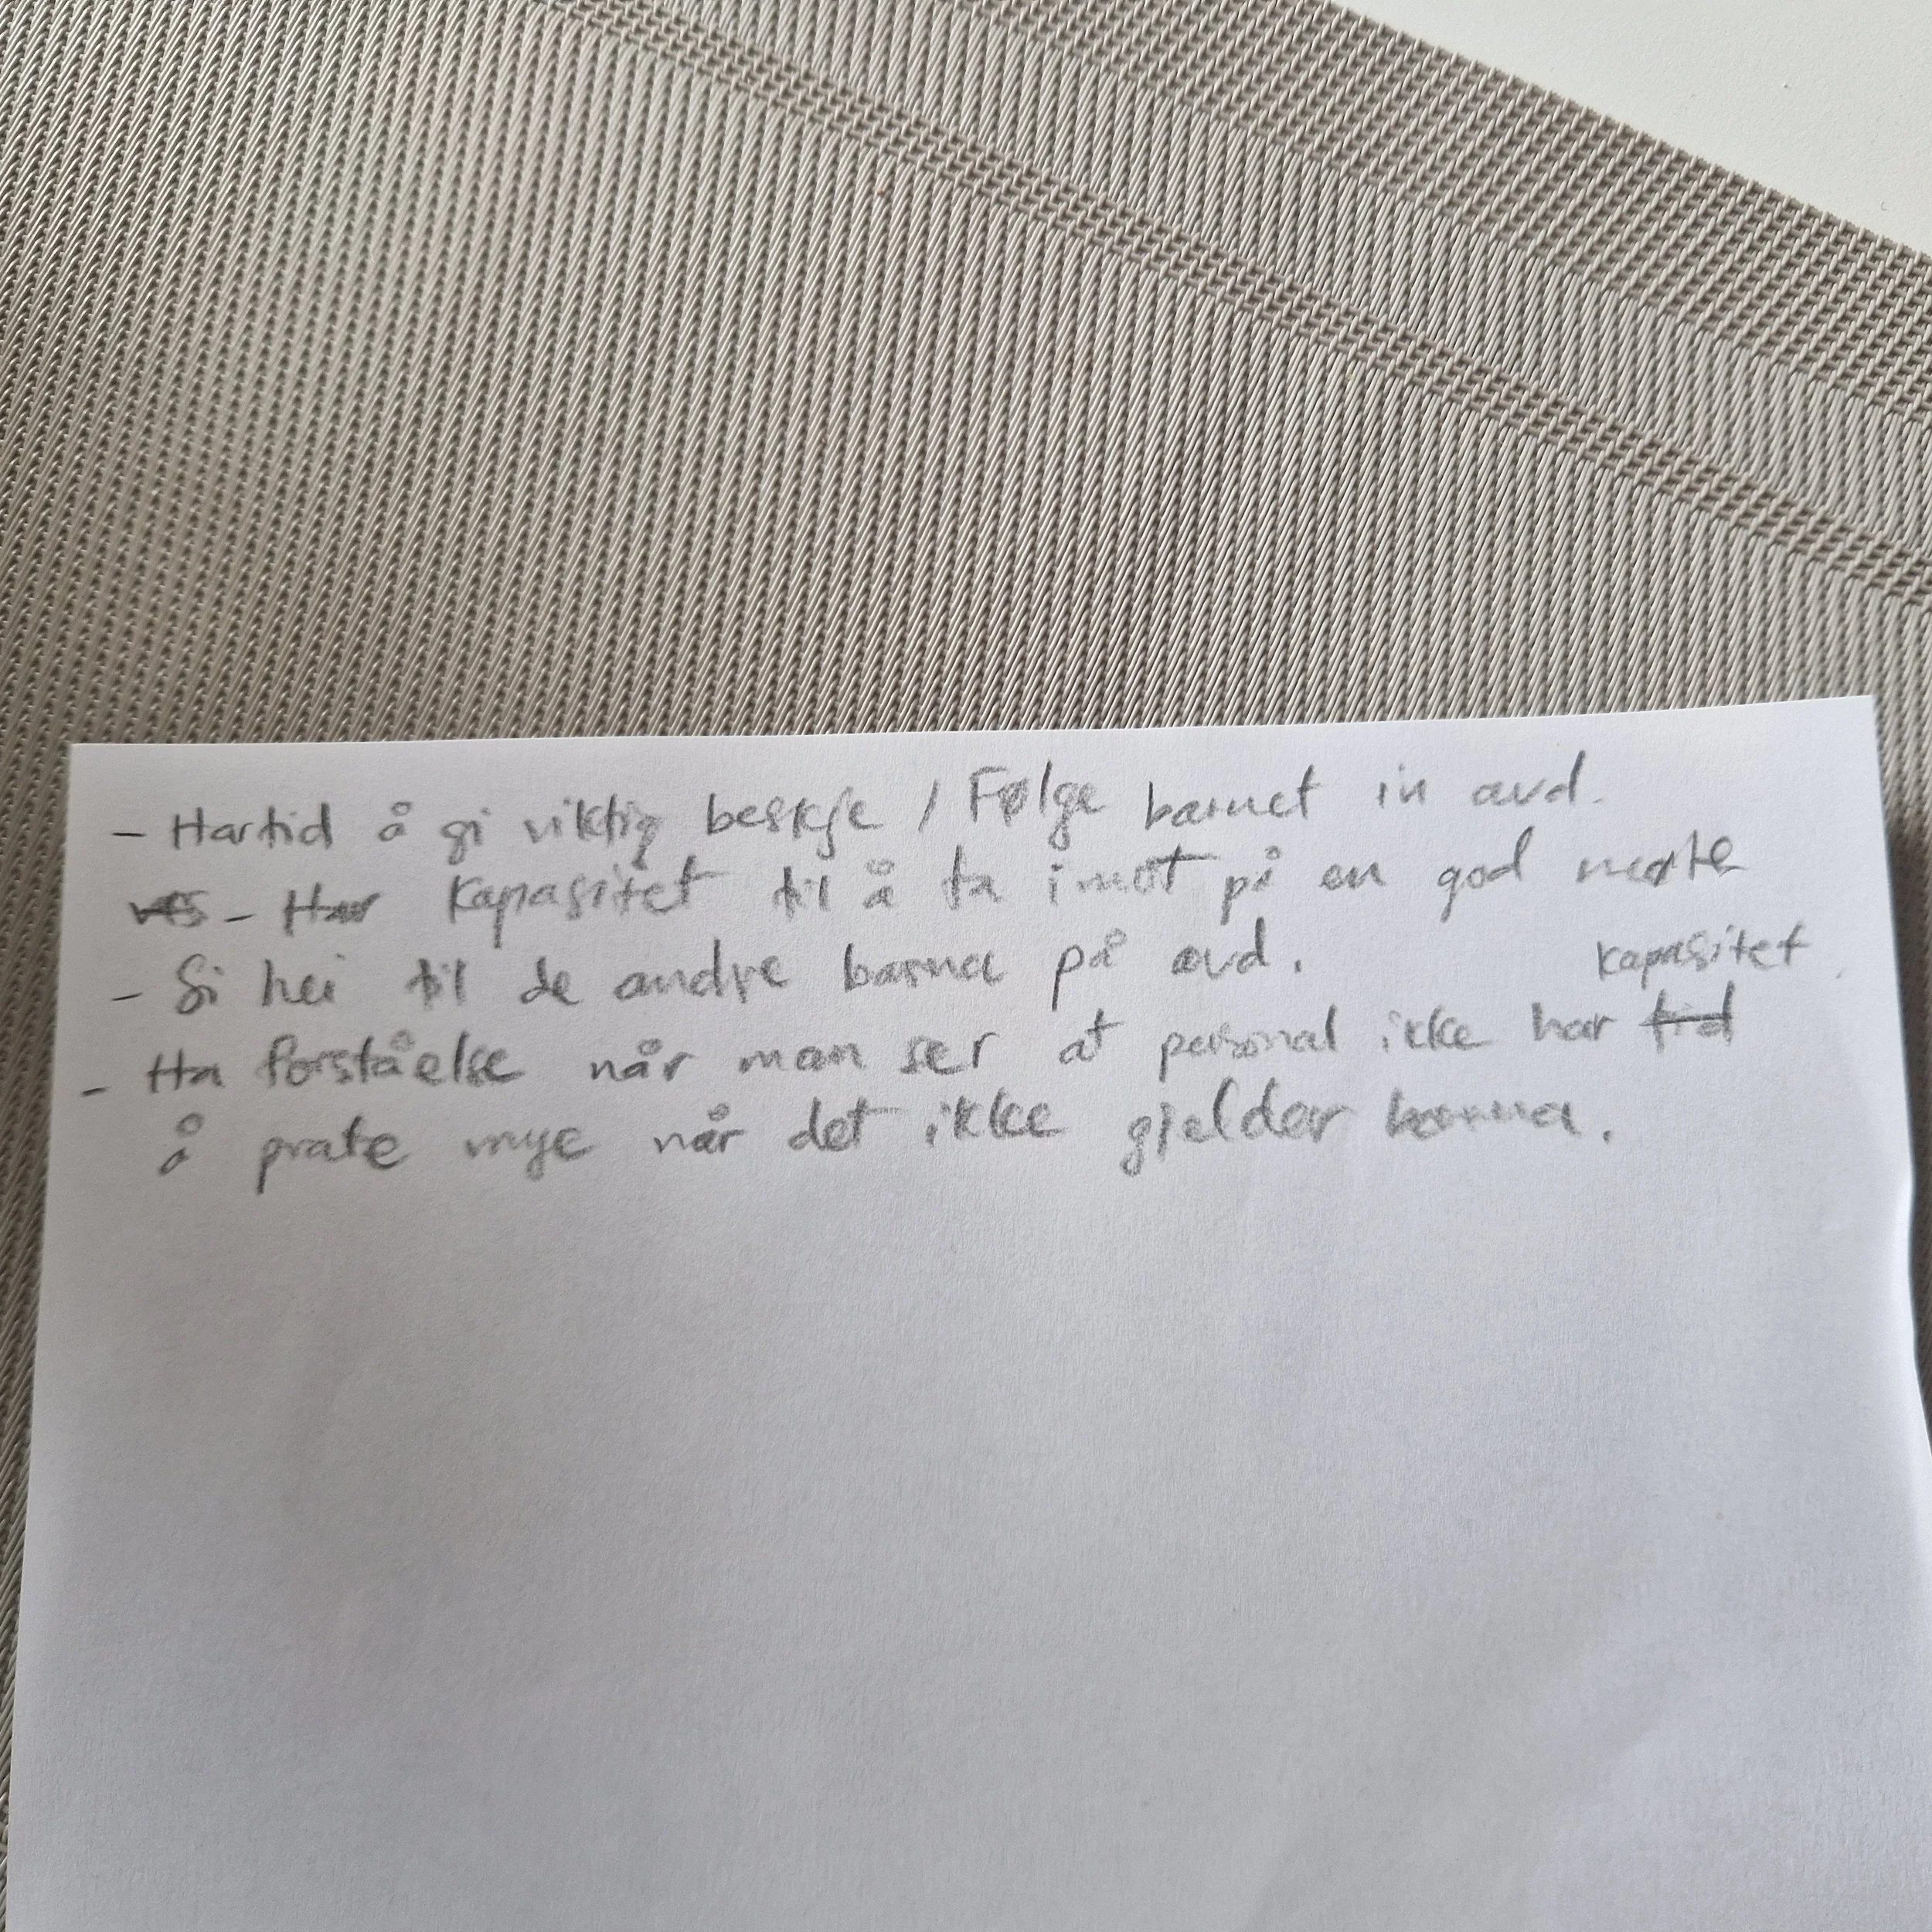 - Har tid å gi viktig beskje / Følge barnet in avd.
- Har Kapasitet til å ta imot på en god møte
- Si hei til de andre barna på avd.
kapasitet
- Ha forståelse når man ser at personal ikke har tid
å prate mye når det ikke gjelder barna.